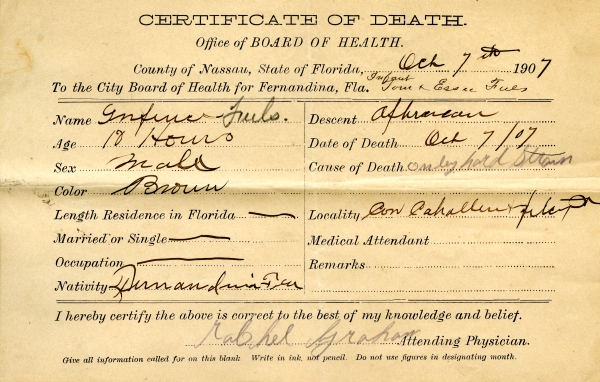 CERTIFICATE OF DEATH.
Office of BOARD OF HEALTH.
County of Nassau, State of Florida, Oct 7th 1907
To the City Board of Health for Fernandina, Fla. Infant Tom & Essee
Name
Descent
Age 10 Hours
Date of Death Oct 7/07
Sex Male
Cause of Death
Color Brown
Length Residence in Florida
Locality Con
Married or Single
Medical Attendant
Occupation
Remarks
Nativity
I hereby certify the above is correct to the best of my knowledge and belief.
Graham Attending Physician.
Give all information called for on this blank Write in ink, not pencil. Do not use figures in designating month.